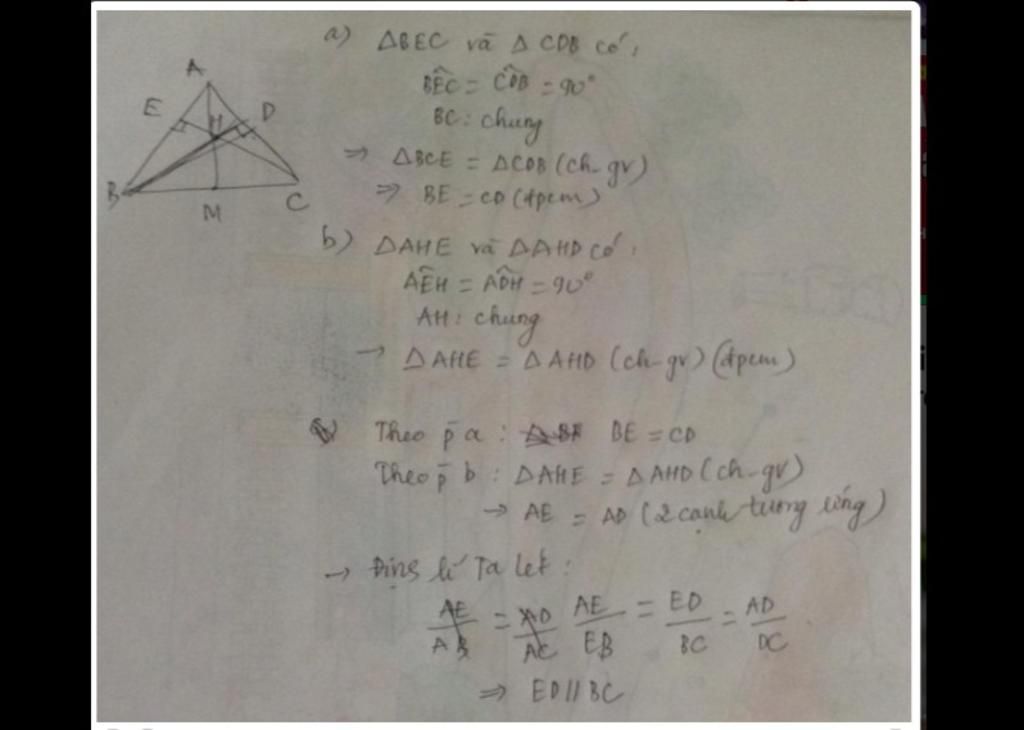 a) ΔBEC và Δ CDB có:
BÊC = CD̂B = 90°
BC: chung
=> ΔBCE = ΔCDB (ch-gv)
=> BE = CD (đpcm)
A
E
H
D
B
M
C
b) ΔAHE và ΔAHD có:
AÊH = AD̂H = 90°
AH: chung
→ ΔAHE = ΔAHD (ch-gv) (đpcm)
Theo p̄ a : BE = CD
Theo p̄ b : ΔAHE = ΔAHD (ch-gv)
→ AE = AD (2 cạnh tương ứng)
→ Định lí Ta let:
AE/AB = AD/AC AE/EB = ED/BC = AD/DC
=> ED // BC